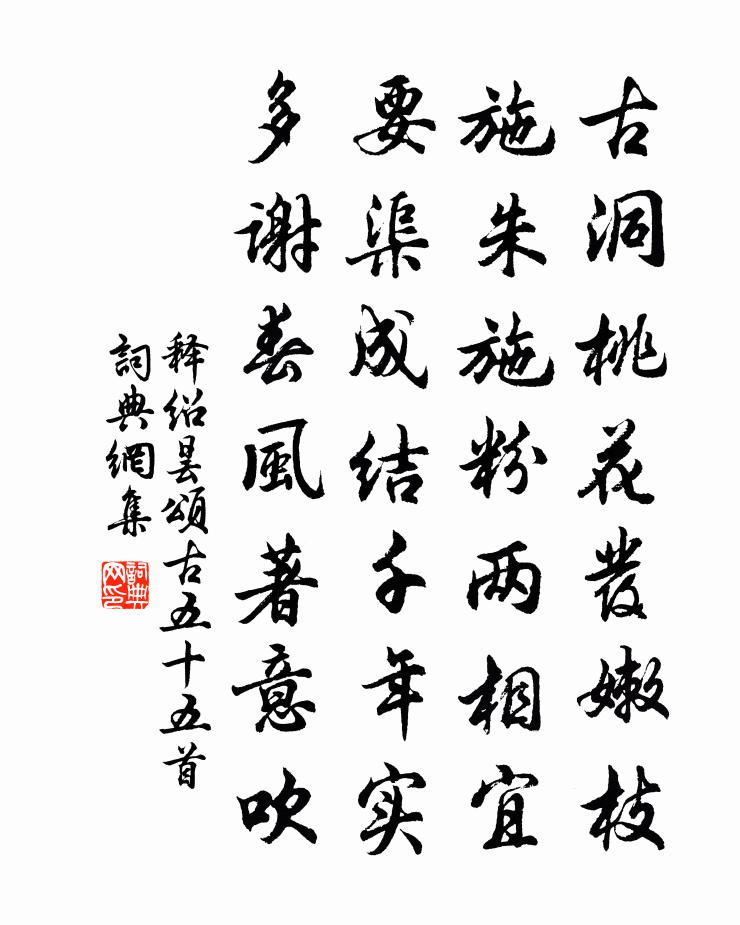 古洞桃花發嫩枝
施朱施粉两相宜
要渠成结千年实
多謝春風著意吹
释绍昙頌古五十五首
詞典網集
詞典网印